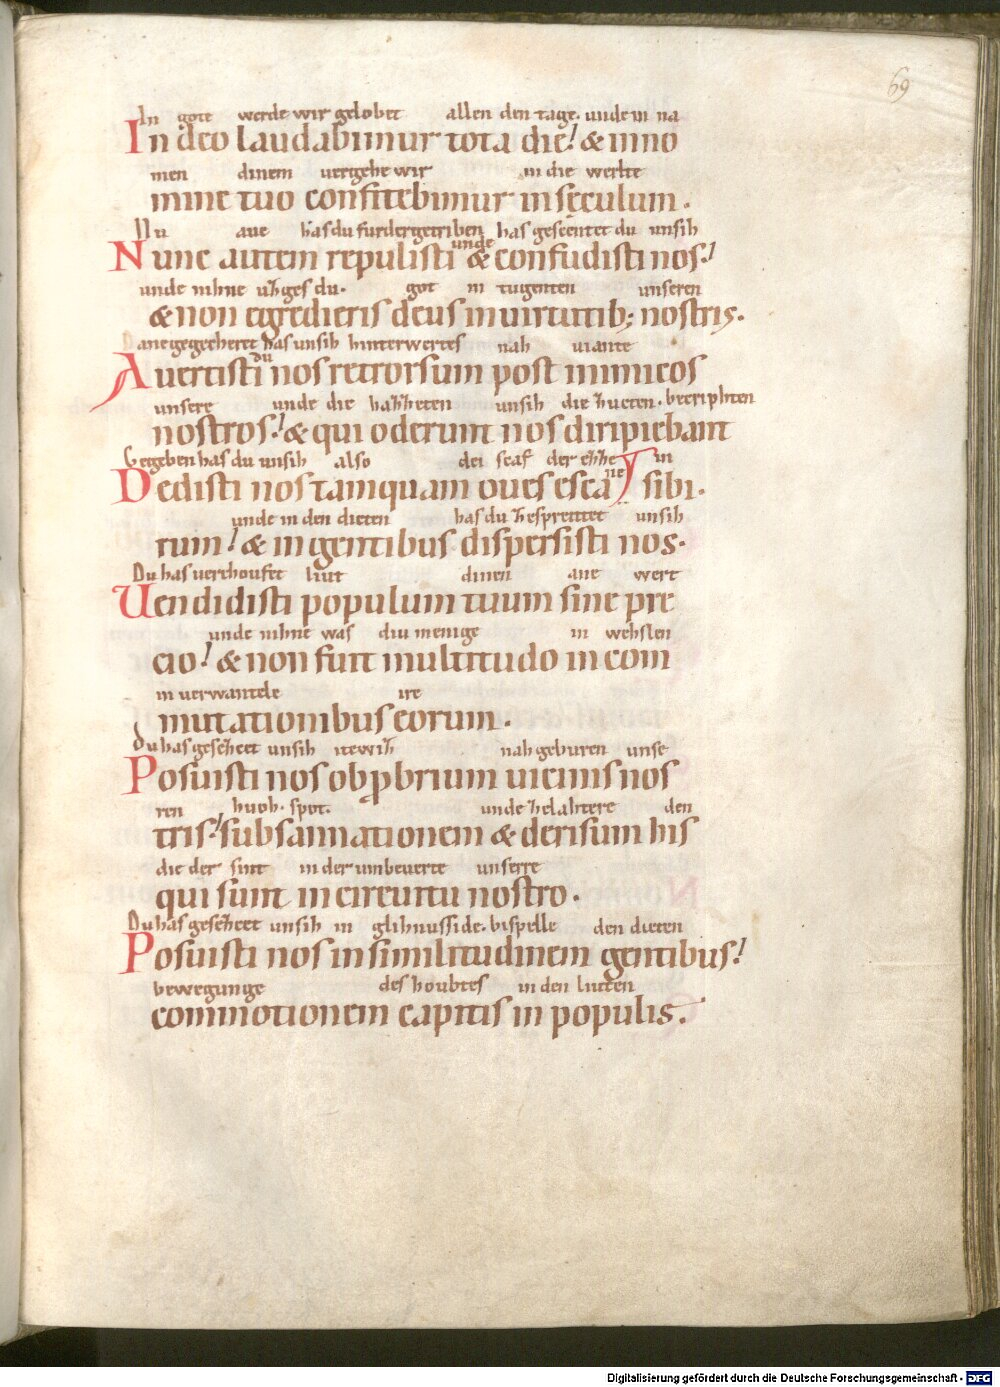 69
In gote werde wir gelobet allen den tage. unde in na
In deo laudabimur tota die! & in no
men dinem vergehe wir in die werlte
mine tuo confitebimur in seculum.
Nu aue has du furder getriben has gescentet du unsih
Nunc autem repulisti unde & confudisti nos!
unde nihne du. got in tugenten unseren
& non egredieris deus in uirtutib; nostris.
has unsih hinterwertes nah viante
Auertisti du nos retrorsum post inimicos
unsere unde die unsih die
nostros! & qui oderunt nos diripiebant
Gegeben has du unsih also dei scaf der in
Dedisti nos tamquam oues esca ne sibi.
unde in den dieten has du unsih
rum! & in gentibus dispersisti nos.
Du has verchoufet liut dinen ane wert
Uendidisti populum tuum sine pre
unde nihne was diu menige in wehslen
cio! & non fuit multitudo in com
in verwantele ire
mutationibus eorum.
Du has unsih nah geburen unse
Posuisti nos obpbrium uicinis nos
ren huoh. spot. unde den
tris! subsannationem & derisum his
die der sint in der umbeuerte unserre
qui sunt in circuitu nostro.
Du has unsih in glihnusside. bispelle den dieten
Posuisti nos in similitudinem gentibus!
bewegunge des houbtes in den liuten
commotionem capitis in populis.
Digitalisierung gefördert durch die Deutsche Forschungsgemeinschaft - DFG